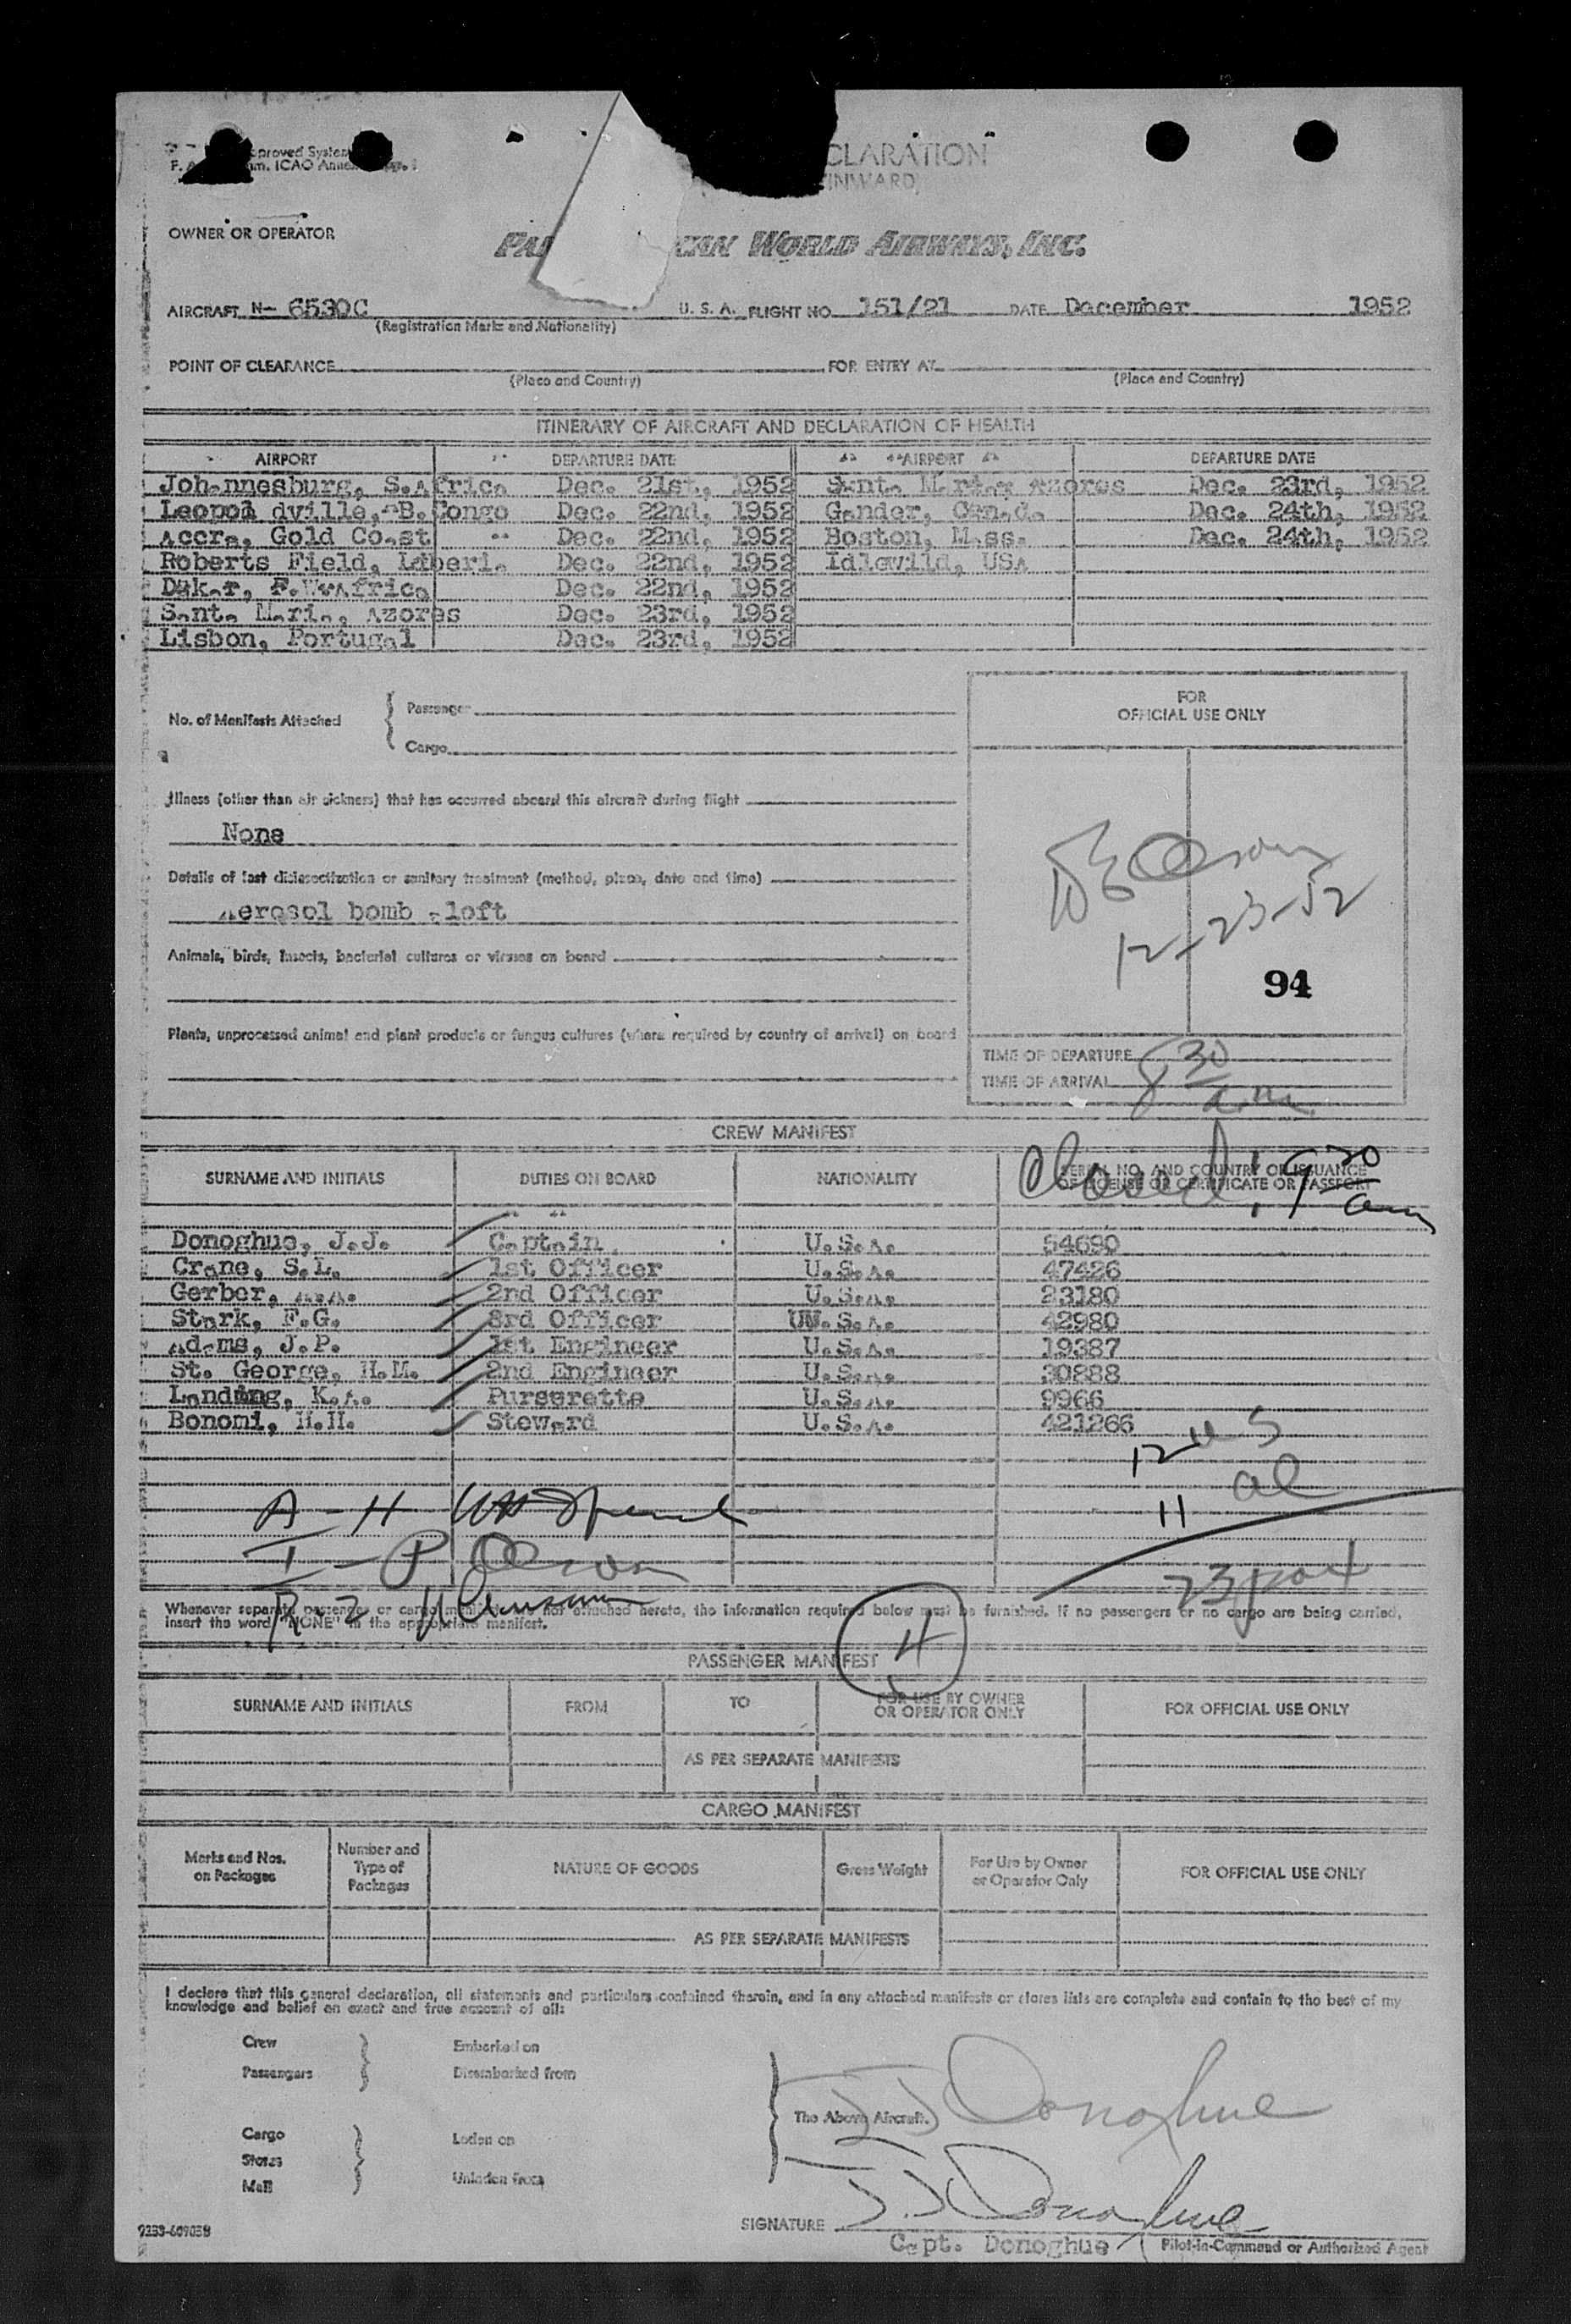 proved System
ICAO Annex
CLARATION
(INWARD)
OWNER OR OPERATOR
CAN WORLD AIRWAYS, INC.
AIRCRAFT N- 6530C U. S. A. FLIGHT NO. 151/21 DATE December 1952
(Registration Marks and Nationality)
POINT OF CLEARANCE FOR ENTRY AT
(Place and Country) (Place and Country)
ITINERARY OF AIRCRAFT AND DECLARATION OF HEALTH
AIRPORT DEPARTURE DATE AIRPORT DEPARTURE DATE
Johannesburg, S.Africa Dec. 21st, 1952 Santa Maria, Azores Dec. 23rd, 1952
Leopol dville, B.Congo Dec. 22nd, 1952 Gander, Canada Dec. 24th, 1952
Accra, Gold Coast Dec. 22nd, 1952 Boston, Mass. Dec. 24th, 1952
Roberts Field, Liberia Dec. 22nd, 1952 Idlewild, USA
Dakar, F.W.Africa Dec. 22nd, 1952
Santa Maria, Azores Dec. 23rd, 1952
Lisbon, Portugal Dec. 23rd, 1952
FOR
OFFICIAL USE ONLY
No. of Manifests Attached
Passenger
Cargo
Illness (other than air sickness) that has occurred aboard this aircraft during flight
None
Details of last disinsectization or sanitary treatment (method, place, date and time)
Aerosol bomb aloft
12-23-52
Animals, birds, insects, bacterial cultures or viruses on board
94
Plants, unprocessed animal and plant products or fungus cultures (where required by country of arrival) on board
TIME OF DEPARTURE
TIME OF ARRIVAL 8 30 a.m.
CREW MANIFEST
SURNAME AND INITIALS DUTIES ON BOARD NATIONALITY SERIAL NO. AND COUNTRY OF ISSUANCE
OF LICENSE OR CERTIFICATE OR PASSPORT
Closed: 9 30 am
Donoghue, J.J. Captain U.S.A. 54690
Crane, S.L. 1st Officer U.S.A. 47426
Gerber, A.A. 2nd Officer U.S.A. 23180
Stark, F.G. 3rd Officer U.S.A. 42980
Adams, J.P. 1st Engineer U.S.A. 19387
St. George, H.M. 2nd Engineer U.S.A. 30288
Landing, K.A. Purserette U.S.A. 9966
Bonomi, H.H. Steward U.S.A. 421266
12 U S
11 al
A - H
I - P Olson
23 pax
R - Z
Whenever separate passenger or cargo manifests are not attached hereto, the information required below must be furnished. If no passengers or no cargo are being carried,
insert the word "NONE" in the appropriate manifest.
H
PASSENGER MANIFEST
SURNAME AND INITIALS FROM TO FOR USE BY OWNER
OR OPERATOR ONLY FOR OFFICIAL USE ONLY
AS PER SEPARATE MANIFESTS
CARGO MANIFEST
Marks and Nos.
on Packages Number and
Type of
Packages NATURE OF GOODS Gross Weight For Use by Owner
or Operator Only FOR OFFICIAL USE ONLY
AS PER SEPARATE MANIFESTS
I declare that this general declaration, all statements and particulars contained therein, and in any attached manifests or stores lists are complete and contain to the best of my
knowledge and belief an exact and true account of all:
Crew Embarked on
Passengers Disembarked from
The Above Aircraft.
J J Donoghue
Cargo Laden on
Stores
Mail Unladen from
SIGNATURE J.J Donoghue
Capt. Donoghue Pilot-in-Command or Authorized Agent
9233-609058